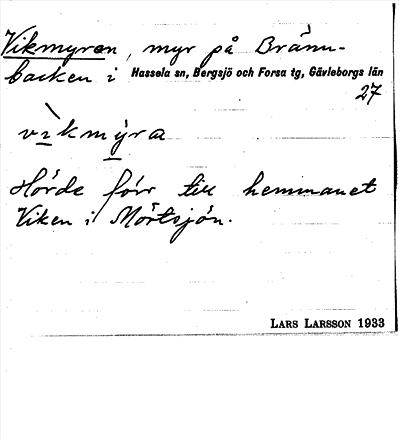 Vikmyren, myr på Bränn-
backen i Hassela sn, Bergsjö och Forsa tg, Gävleborgs län
27
vìkmýra
Hörde förr till hemmanet
Viken i Mörtsjön.
LARS LARSSON 1933